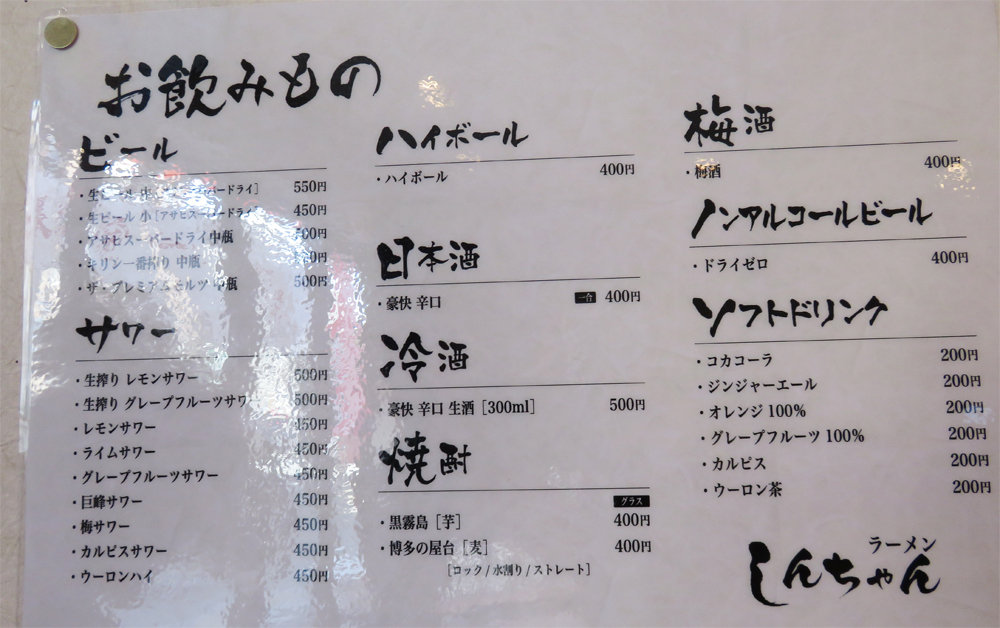 お飲みもの
ビール
・生ビール 中 ードライ] 550円
・生ビール 小 [アサヒスーパードライ] 450円
・アサヒスーパードライ 中瓶 00円
・キリン一番搾り 中瓶 0円
・ザ・プレミアムモルツ 中瓶 500円
サワー
・生搾り レモンサワー 500円
・生搾り グレープフルーツサワー 500円
・レモンサワー 450円
・ライムサワー 450円
・グレープフルーツサワー 450円
・巨峰サワー 450円
・梅サワー 450円
・カルピスサワー 450円
・ウーロンハイ 450円
ハイボール
・ハイボール 400円
日本酒
・豪快 辛口 一合 400円
冷酒
・豪快 辛口 生酒 [300ml] 500円
焼酎
グラス
・黒霧島 [芋] 400円
・博多の屋台 [麦] 400円
[ロック/水割り/ストレート]
梅酒
・梅酒 400円
ノンアルコールビール
・ドライゼロ 400円
ソフトドリンク
・コカコーラ 200円
・ジンジャーエール 200円
・オレンジ 100% 200円
・グレープフルーツ 100% 200円
・カルピス 200円
・ウーロン茶 200円
ラーメン
しんちゃん